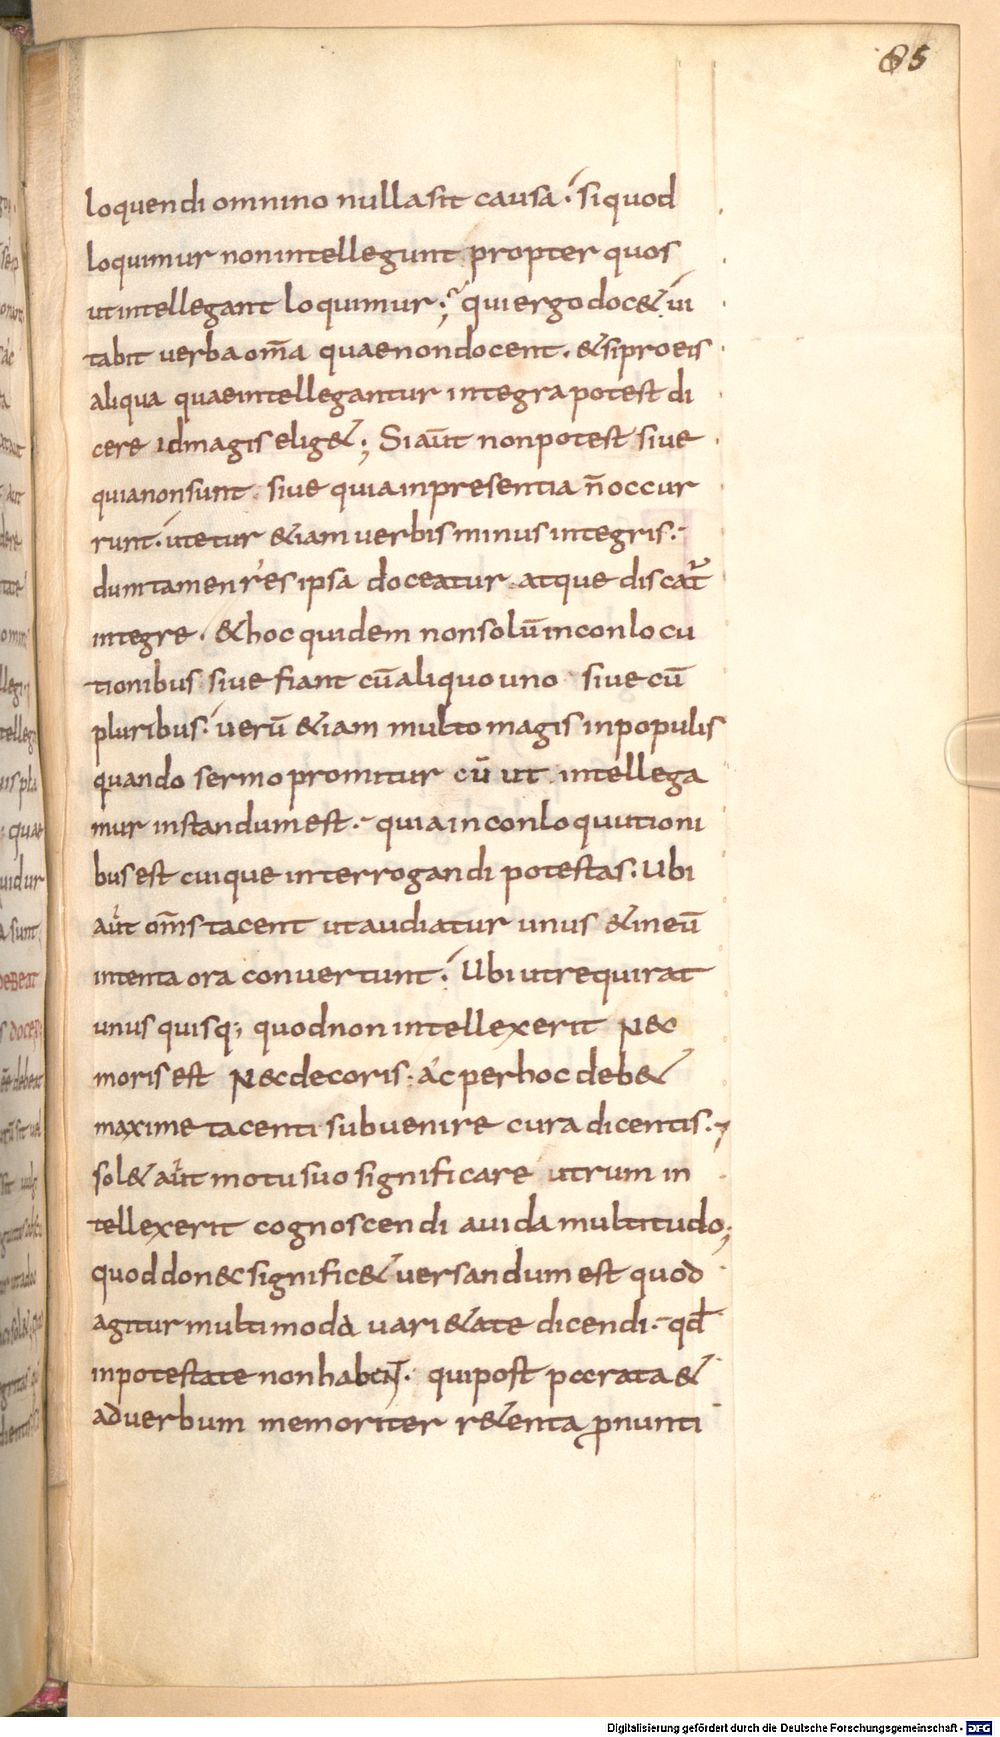 85
loquendi omnino nulla sit causa. si quod
loquimur non intellegunt propter quos
ut intellegant loquimur; qui ergo doc& ui
tabit uerba om̄a quae non docent. & si pro eis
aliqua quae intellegantur integra potest di
cere id magis elig&; Si aūt non potest siue
quia non sunt. siue quia in presentia n̄ occur
runt. utetur &iam uerbis minus integris.
dum tamen res ipsa doceatur. atque discat̄
integre. & hoc quidem non solū in conlocu
tionibus siue fiant cū aliquo uno siue cū
pluribus. uerū &iam multo magis in populis
quando sermo promitur cū ut intellega
mur instandum est. quia in conloquutioni
bus est cuique interrogandi potestas. Ubi
aūt om̄s tacent ut audiatur unus & in eū
intenta ora conuertunt. Ubi ut requirat
unus quisq; quod non intellexerit Nec
moris est Nec decoris. ac per hoc deb&
maxime tacenti subuenire cura dicentis.
sol& aūt motu suo significare utrum in
tellexerit cognoscendi auida multitudo;
quod donec signific& uersandum est quod
agitur multimoda uari&ate dicendi. qđ
in potestate non habent. qui post
ad uerbum memoriter r&enta ꝓnunti
Digitalisierung gefördert durch die Deutsche Forschungsgemeinschaft - DFG